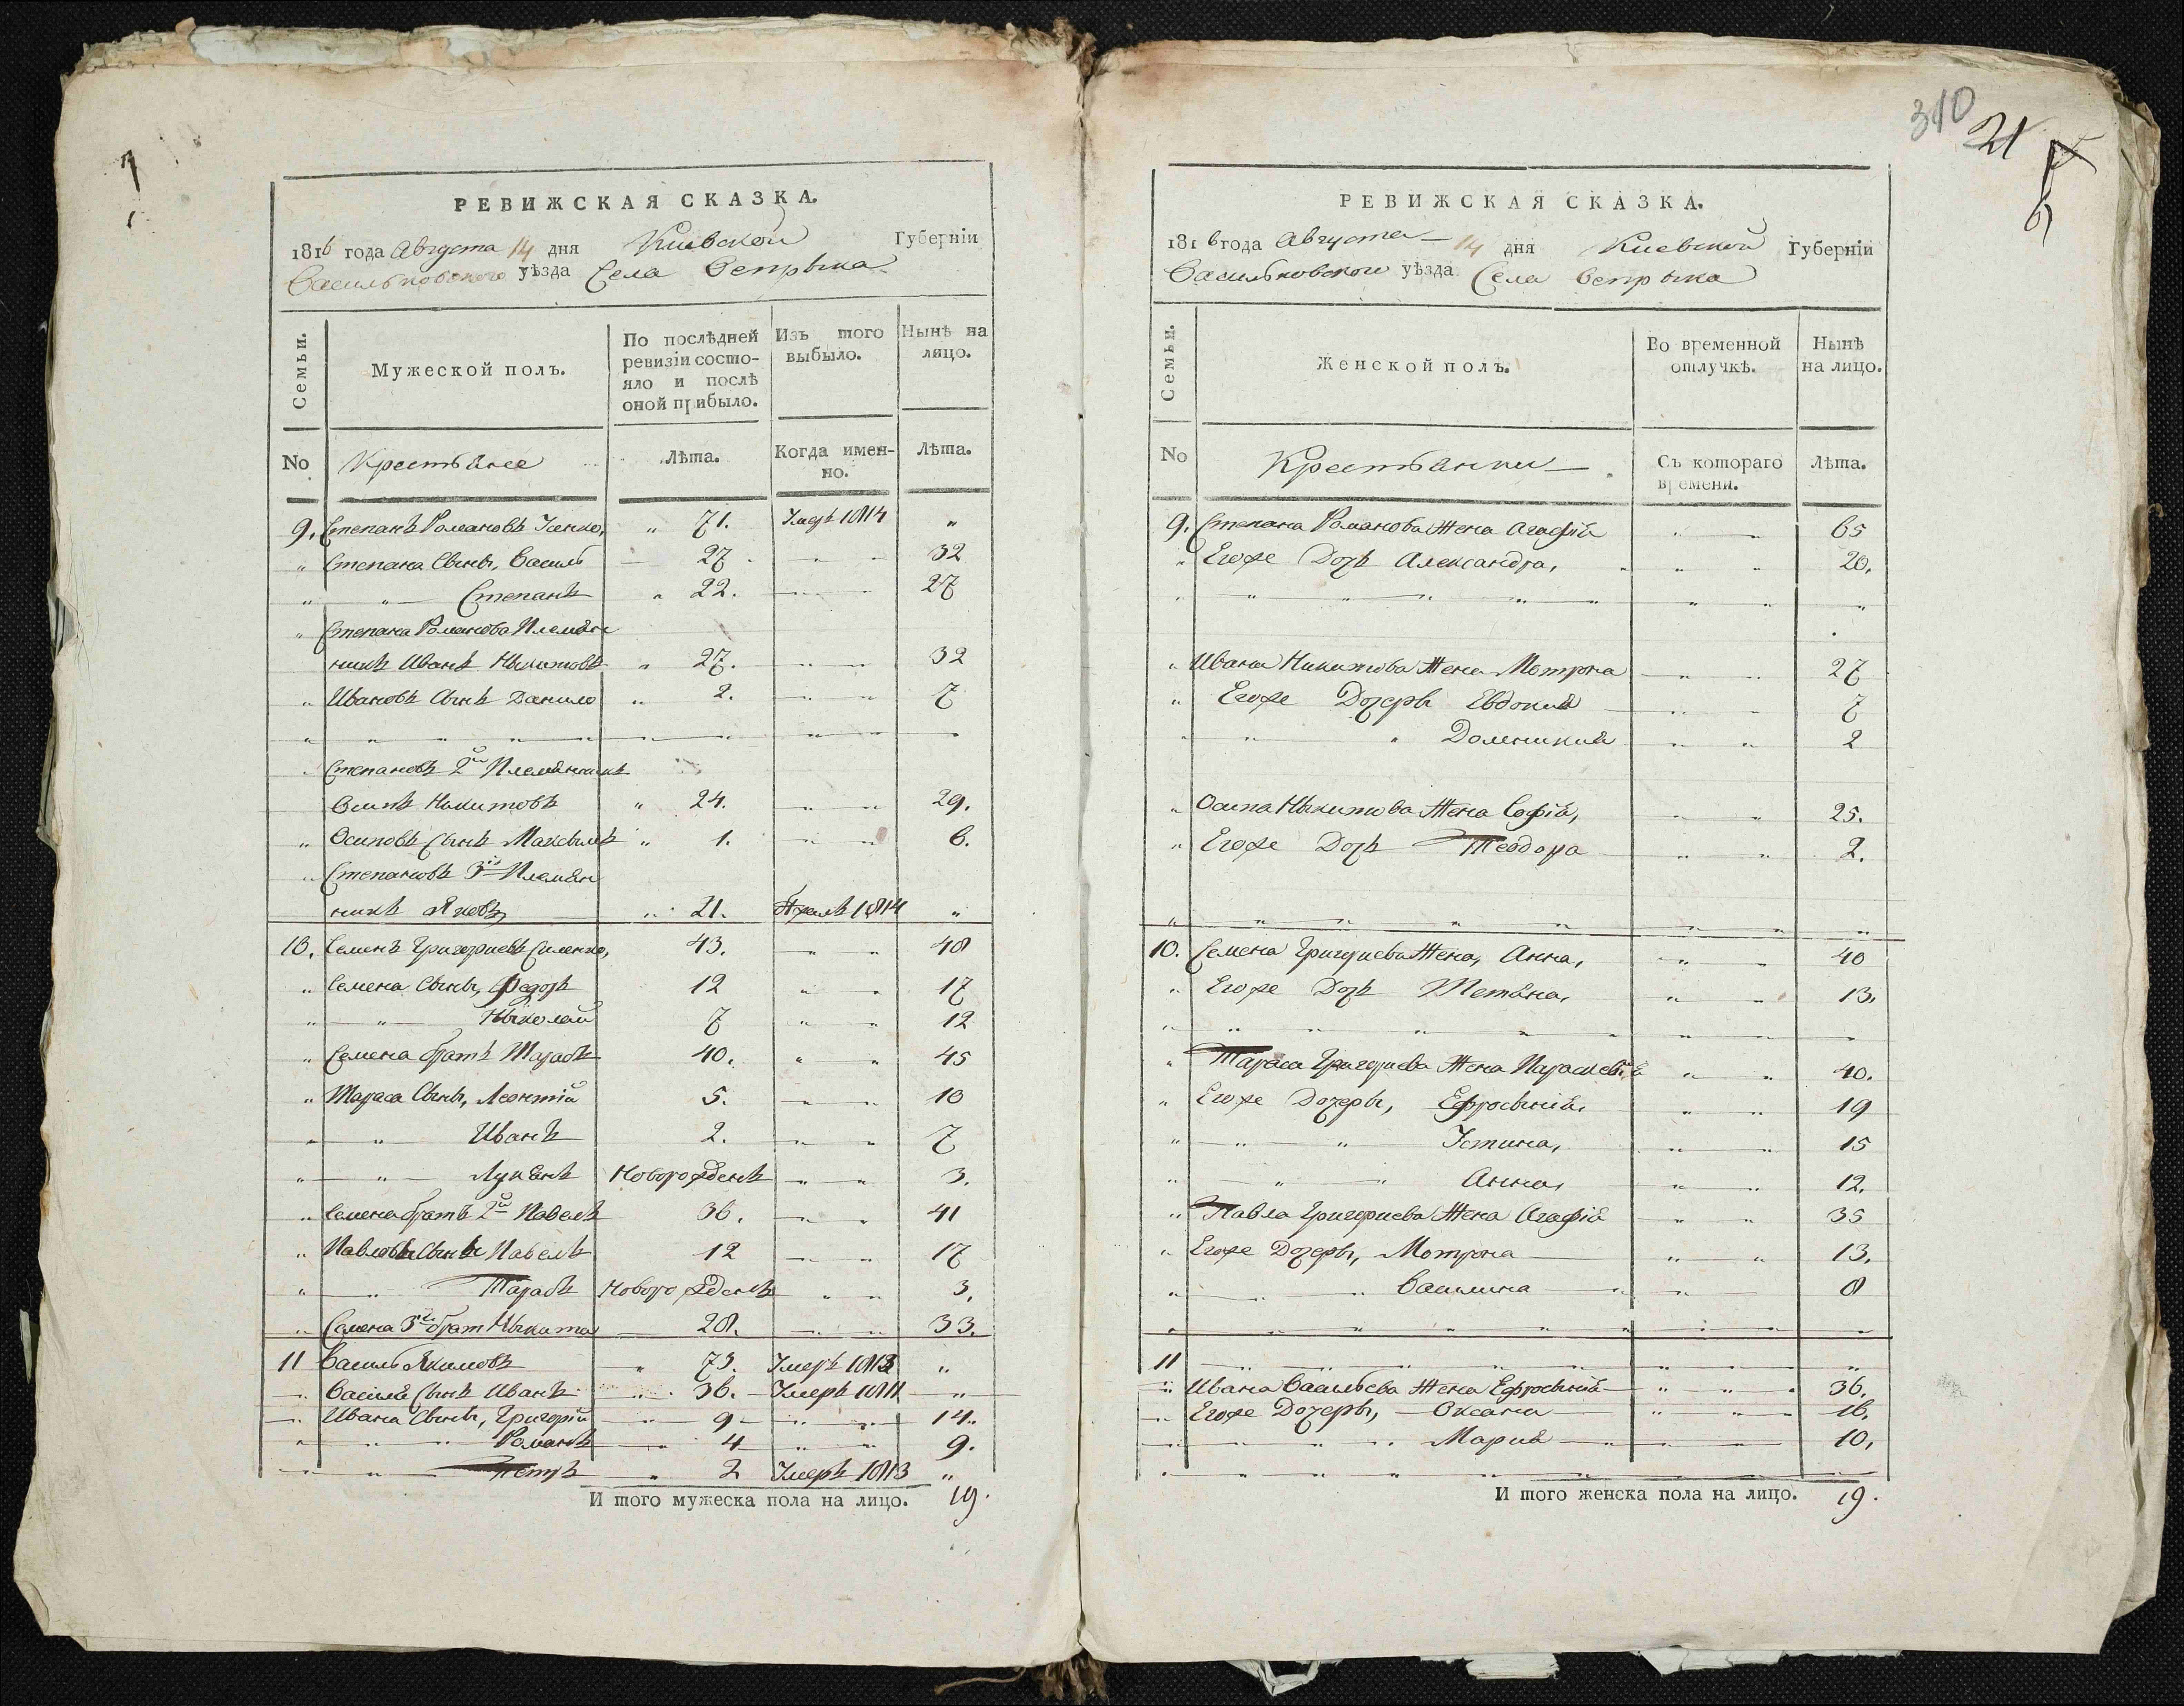 РЕВИЖСКАЯ СКАЗКА.
1816 года Августа 14 дня Киевской Губерніи
Васильковского уѣзда Села Вепрыка
Семьи.
Мужеской полъ.
По послѣдней ревизіи состо-
яло и послѣ
оной прибыло.
Изъ того выбыло.
Нынѣ на лицо.
No Крестьяне Лѣта. Когда имен-
но. Лѣта.
9. Степанъ Романовъ " 71. Умеръ 1814 "
" Степана Сыны, Василь 27 " " 32
" " Степанъ " 22. 27
" Степана Романова Племян
никъ Иванъ Никитовъ " 27. " " 32
" Ивановъ Сынъ Данило " 2. " " 7
" Степановъ 2й Племянникъ
Осипъ Никитовъ " 24. " " 29.
" Осиповъ Сынъ Максымъ " 1. " " 6.
" Степановъ 3й Племян
никъ Яковъ " 21. 1814 "
10. Семенъ Григориевъ Силенко, 43. " " 48
" Семена Сыны, Федоръ 12 " " 17
" " Николай 7 " " 12
" Семена братъ Тарасъ 40. " " 45
" Тараса Сыны, Леонтій 5. " " 10
" " Иванъ 2. " " 7
" " Лукянъ Новорожденъ " " 3.
" Семена братъ 2й Павелъ 36. " " 41
" Павловы Сыны Павелъ 12 " " 17
" " Тарасъ Новорожденъ " " 3.
" Семена 3й брат Никита 28. " " 33.
11 Василь Якимовъ " 73. Умеръ 1813 "
" Василя Сынъ Иванъ " 36. Умеръ 1811 "
" Ивана Сыны, Григорій " 9 " " 14.
" " " Романъ " 4 " " 9.
" " Петръ " 2 Умеръ 1813 "
И того мужеска пола на лицо. 19.
310
21
РЕВИЖСКАЯ СКАЗКА.
1816 года Августа 14 дня Киевской Губерніи
Васильковского уѣзда Села Вепрыка
Семьи.
Женской полъ.
Во временной отлучкѣ.
Нынѣ на лицо.
No Крестьянки Съ котораго
времени. Лѣта.
9. Степана Романова Жена Агафія " " 65
" Егоже Дочь Александра, " " " 20.
" Ивана Никитова Жена Мотрона " " 27
" Егоже Дочеры Евдокия " " 7
" " " Доминикия " " 2
" Осипа Никитова Жена Софія, " " 25.
" Егоже Дочь Теодора " " 2.
10. Семена Григориева Жена, Анна, " " 40
" Егоже Дочь Тетяна, " " 13.
" Тараса Григориева Жена Параскевія " " 40.
" Егоже Дочеры, Ефросынія, " " 19
" " " Устина, " " 15
" " " Анна, " " 12.
" Павла Григориева Жена Агафія " " 35
" Егоже Дочеры, Мотрона " " 13.
" " " Василина " " 8
11
" Ивана Васильева Жена Ефросынія " " " 36.
" Егоже Дочеры, Оксана " " " 16.
" " " " Мария " " 10.
И того женска пола на лицо. 19.